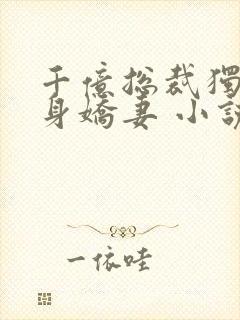 千億總裁獨
身嬌妻 小說
一依哇